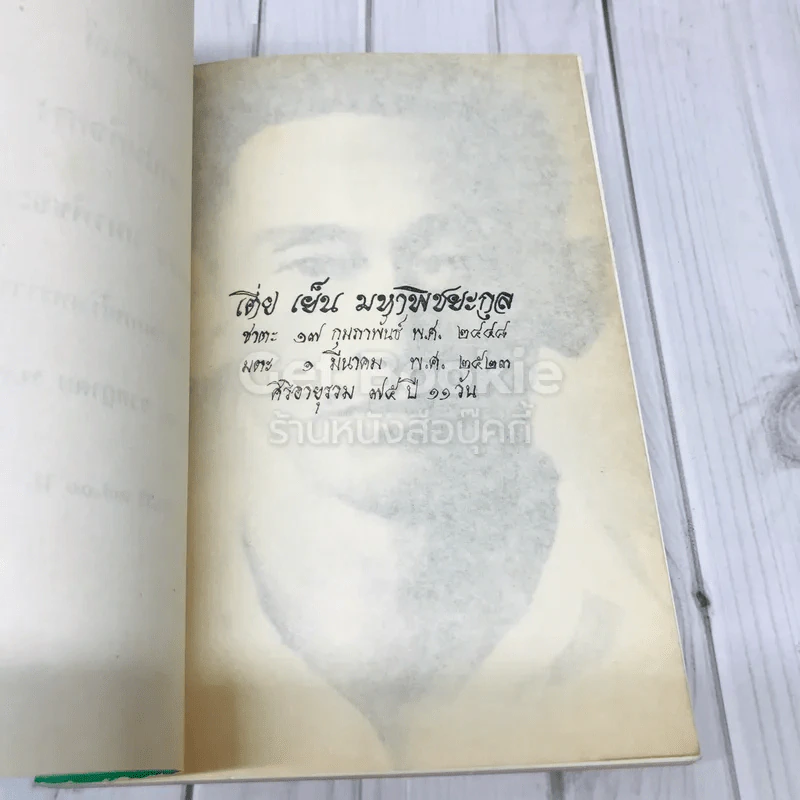 เตี่ย เย็น มหาพิชยะกุล
ชาตะ ๑๗ กุมภาพันธ์ พ.ศ. ๒๔๔๘
มตะ ๑ มีนาคม พ.ศ. ๒๕๒๓
ศิริอายุรวม ๗๕ ปี ๑๑ วัน
Get Bookie
ร้านหนังสือบุ๊คกี้